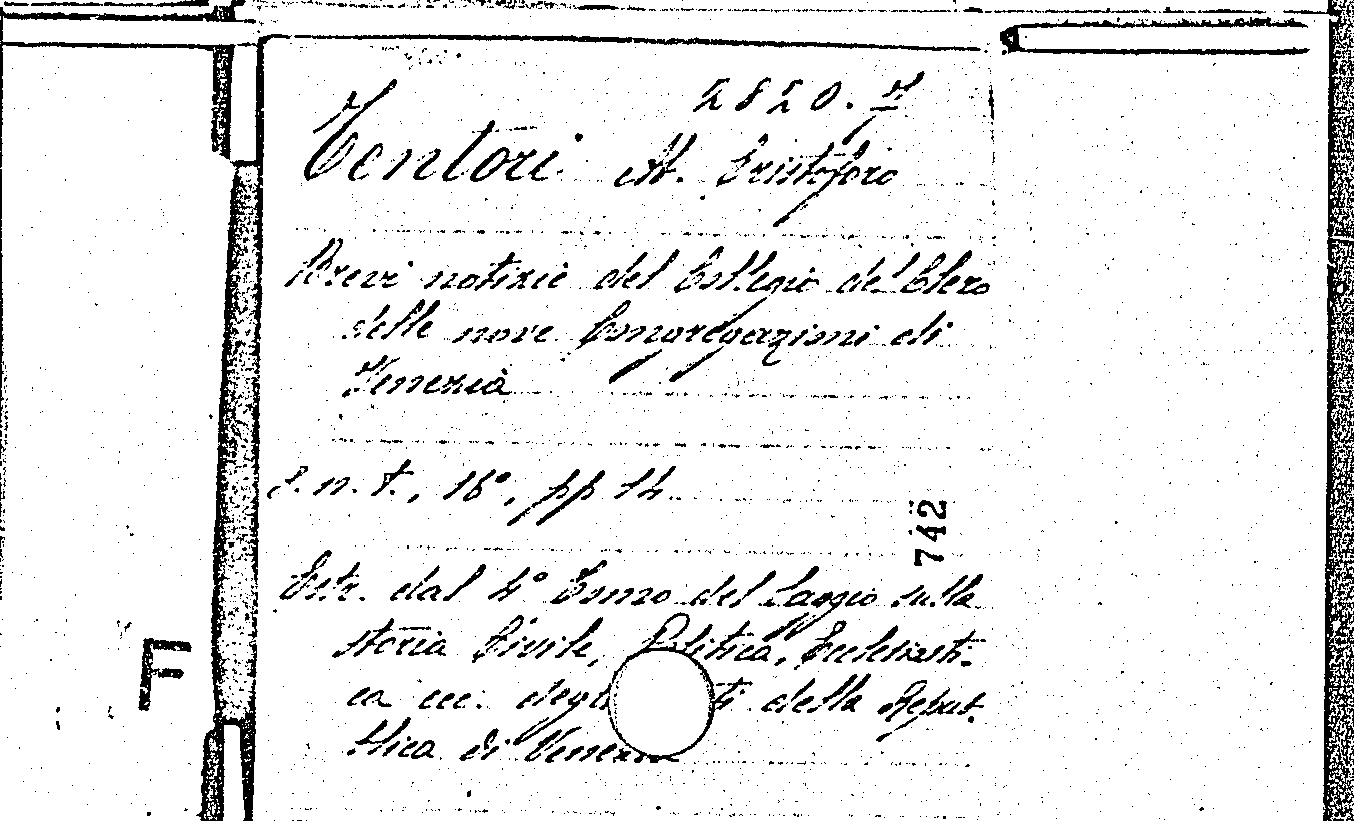 2820.7
Tentori Ab. Cristoforo
Brevi notizie del Collegio del Clero
delle nove Congregazioni di
Venezia
s. n. t., 16°, pp 14
742
Estr. dal 4° Tomo del Saggio sulla
storia Civile, Politica, Ecclesiasti-
ca ecc. degli ti della Repub-
blica di Venezia
F